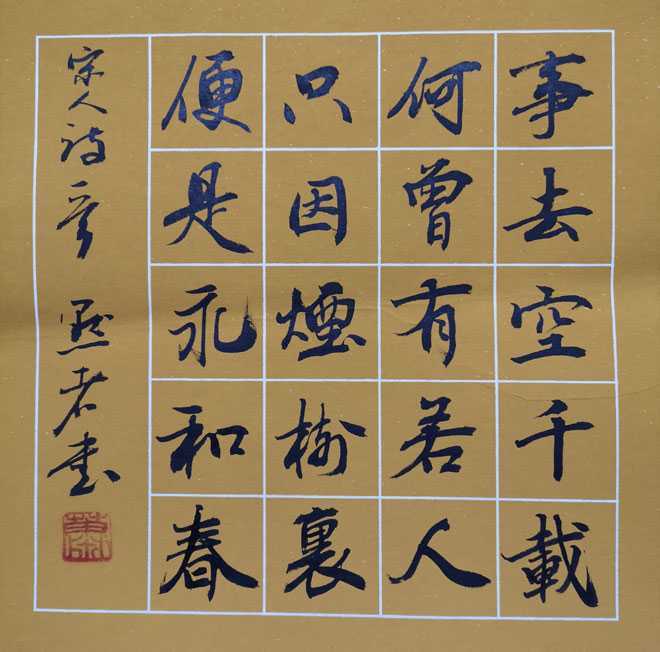 事去空千載
何曾有若人
只因煙樹裏
便是永和春
宋人詩意 默者書
蕭